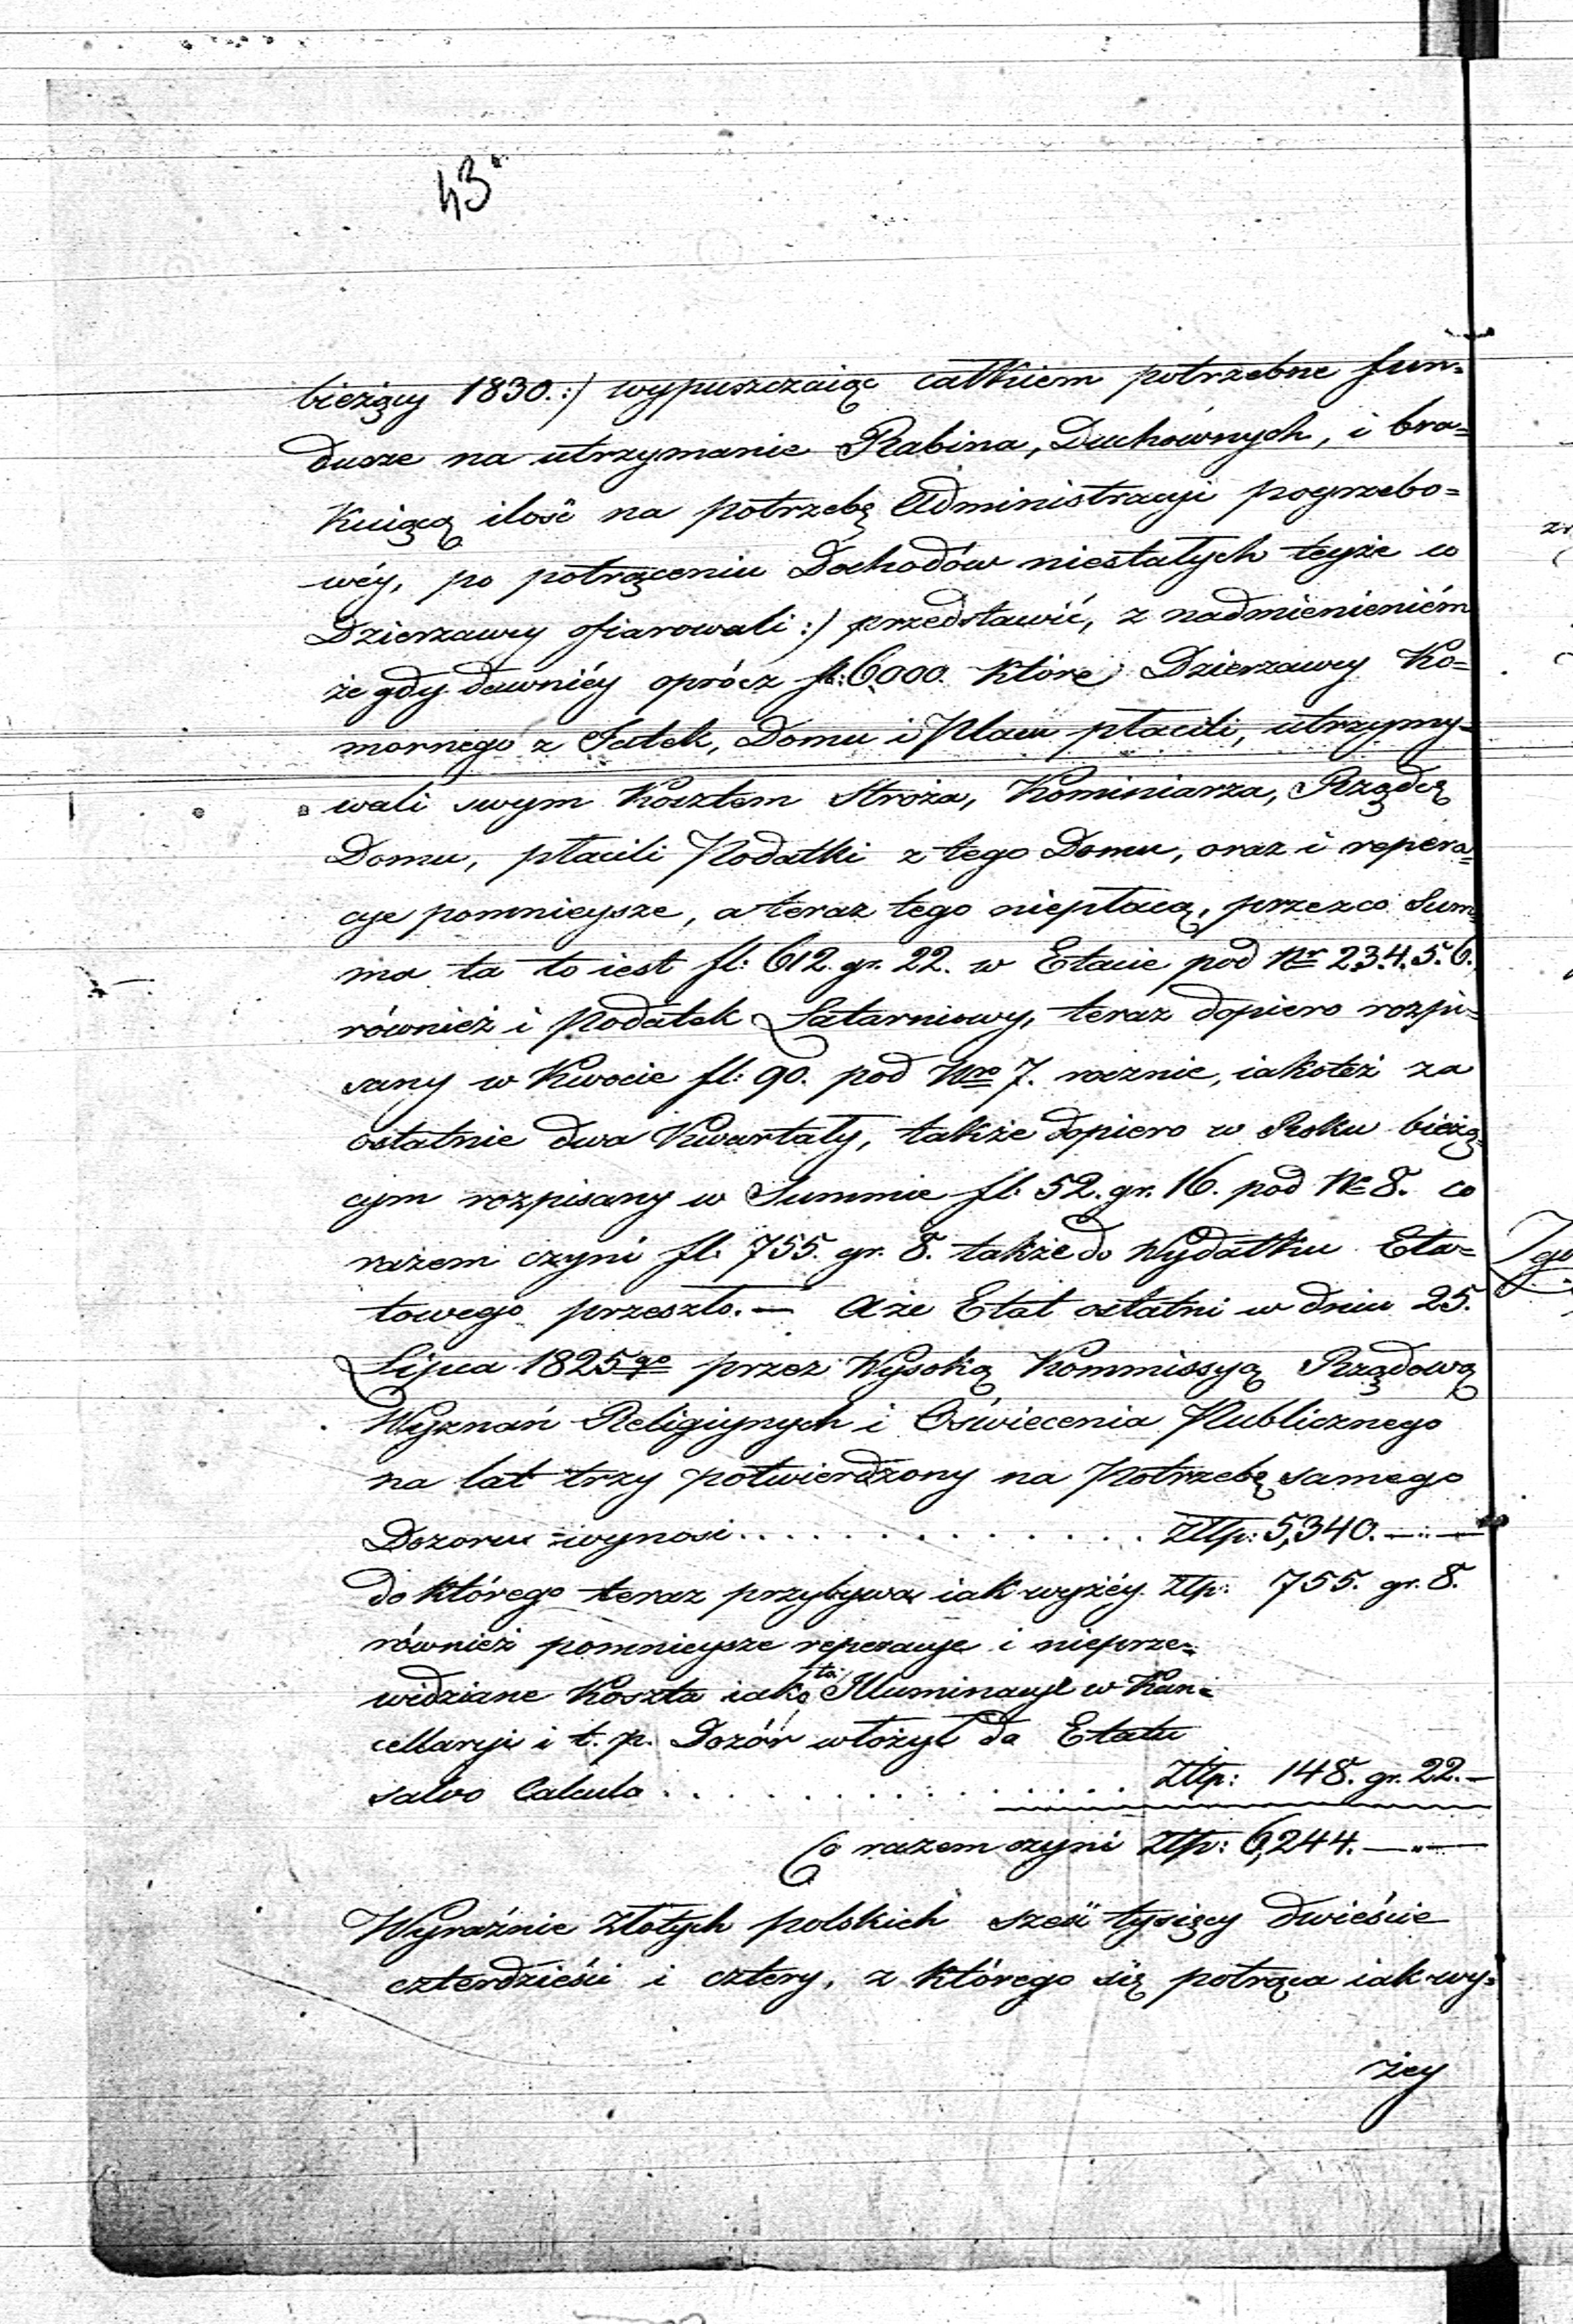 43
bieżący 1830.:) wypuszczaiąc całkiem potrzebne fun=
dusze na utrzymanie Rabina, Duchównych, i bra=
kuiącą ilość na potrzebę Administracyi pogrzebo=
wéy, po potrąceniu Dochodów niestałych teyże w
Dzierzawy ofiarowali:) przedstawić, z nadmienieniém
że gdy dawniéy oprócz fl: 6000. które Dzierzawcy Ko=
mornego z Jatek, Domu i Placu płacili, utrzymy=
wali swym Kosztem Stroża, Kominiarza, Rządcę
Domu, płacili Podatki z tego Domu, oraz i repera=
cye pomnieysze, a teraz tego niepłacą, przezco Sum=
ma ta to iest fl: 612. gr. 22. w Etacie pod Nr 2.3.4.5.6.
również i Podatek Latarniowy, teraz dopiero rozpi=
sany w Kwocie fl: 90. pod Nro 7. rocznie, iakoteż za
ostatnie dwa Kwartały, także dopiero w Roku bieżą=
cym rozpisany w Summie fl: 52. gr. 16. pod Nr 8. co
razem czyni fl: 755. gr. 8. także do Wydatku Eta=
towego przeszło. — A że Etat ostatni w dniu 25.
Lipca 1825go przez Wysoką Kommissyą Rządową
Wyznań Religiynych i Oświecenia Publicznego
na lat trzy potwierdzony na Potrzebę samego
Dozoru wynosi . . . . . . . . . . . . . Złtp: 5,340. — " —
do którego teraz przybywa iak wyżéy Złtp: 755. gr. 8.
również pomnieysze reperacye i nieprze=
widziane Koszta iako to: Illuminacye w Kan=
cellaryi i t. p. Dozór włożył do Etatu
salvo Calculo . . . . . . . . . . . . . Złtp: 148. gr. 22. —
Co razem czyni Złtp: 6,244. — " —
Wyraźnie Złotych polskich sześć tysięcy dwieście
czterdzieści i cztery, z którego się potrąca iak wy=
żey